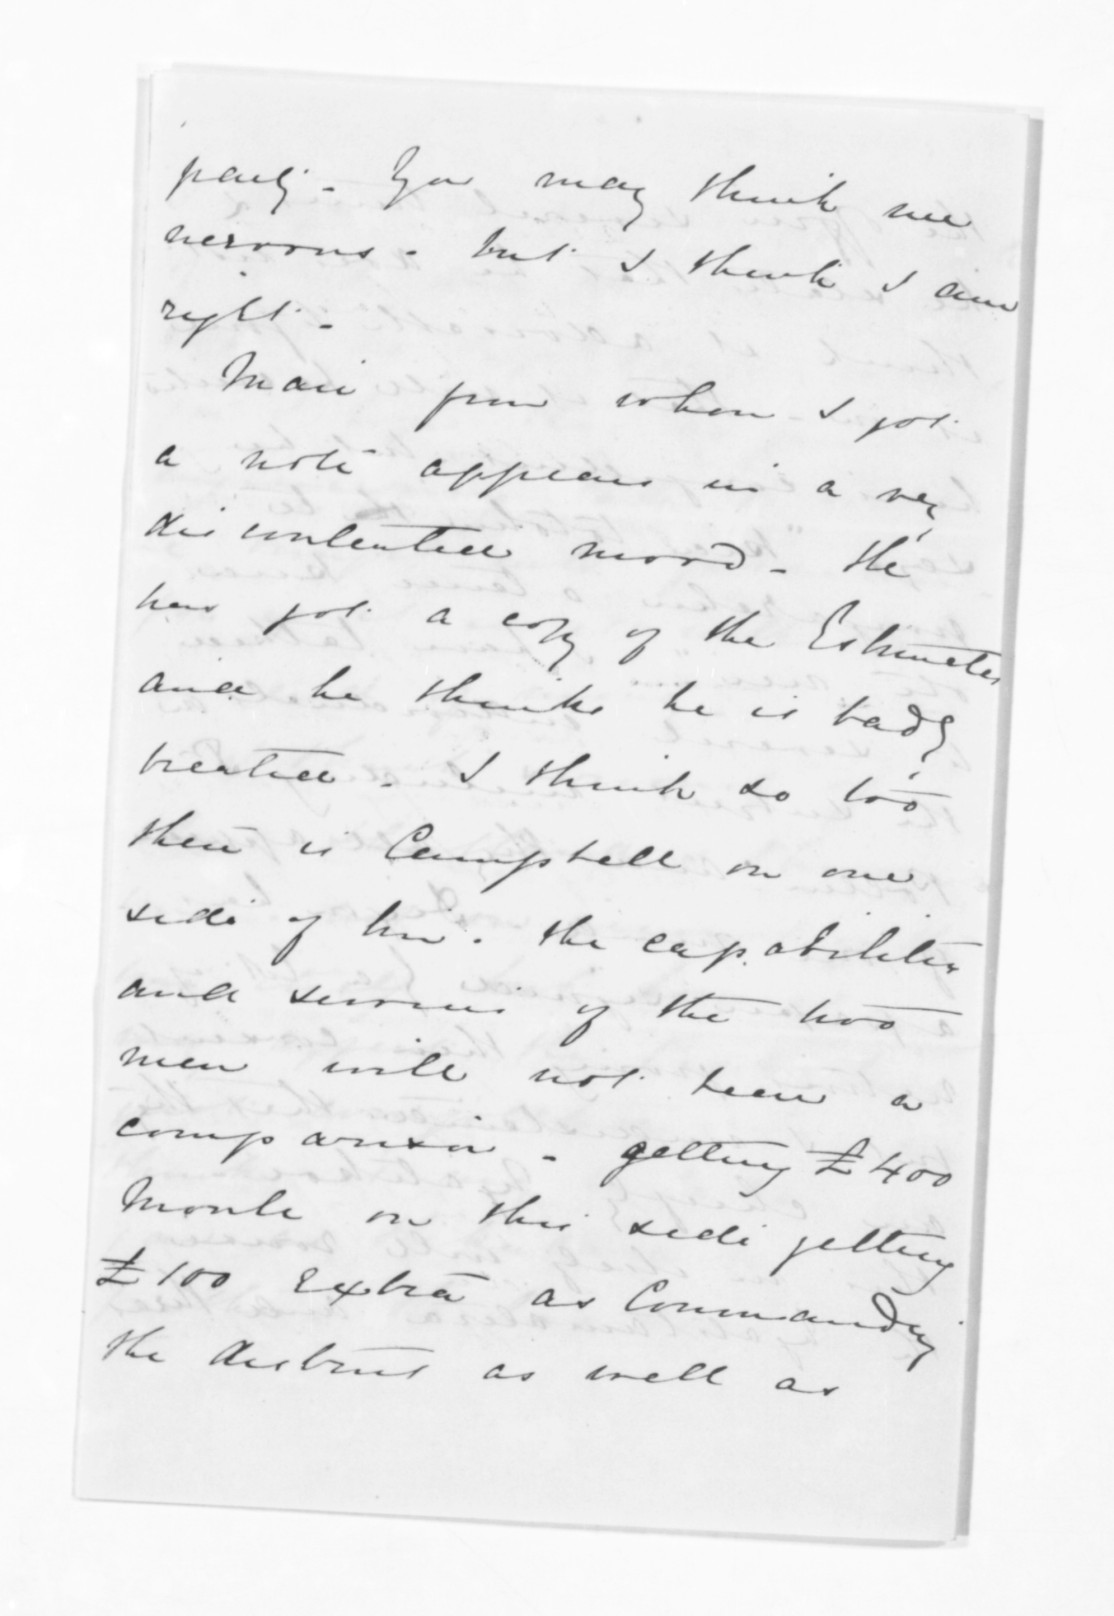 party. You may think me
nervous. but I think I am
right.
Mair from whom I got
a note appears in a very
discontented mood. He
has got a copy of the Estimates
and he thinks he is badly
treated. I think so too
there is Campbell on one
side of him. the capabilities
and services of the two
men will not bear a
comparison. getting £400
Monle on this side getting
£100 extra as Commanding
the district as well as